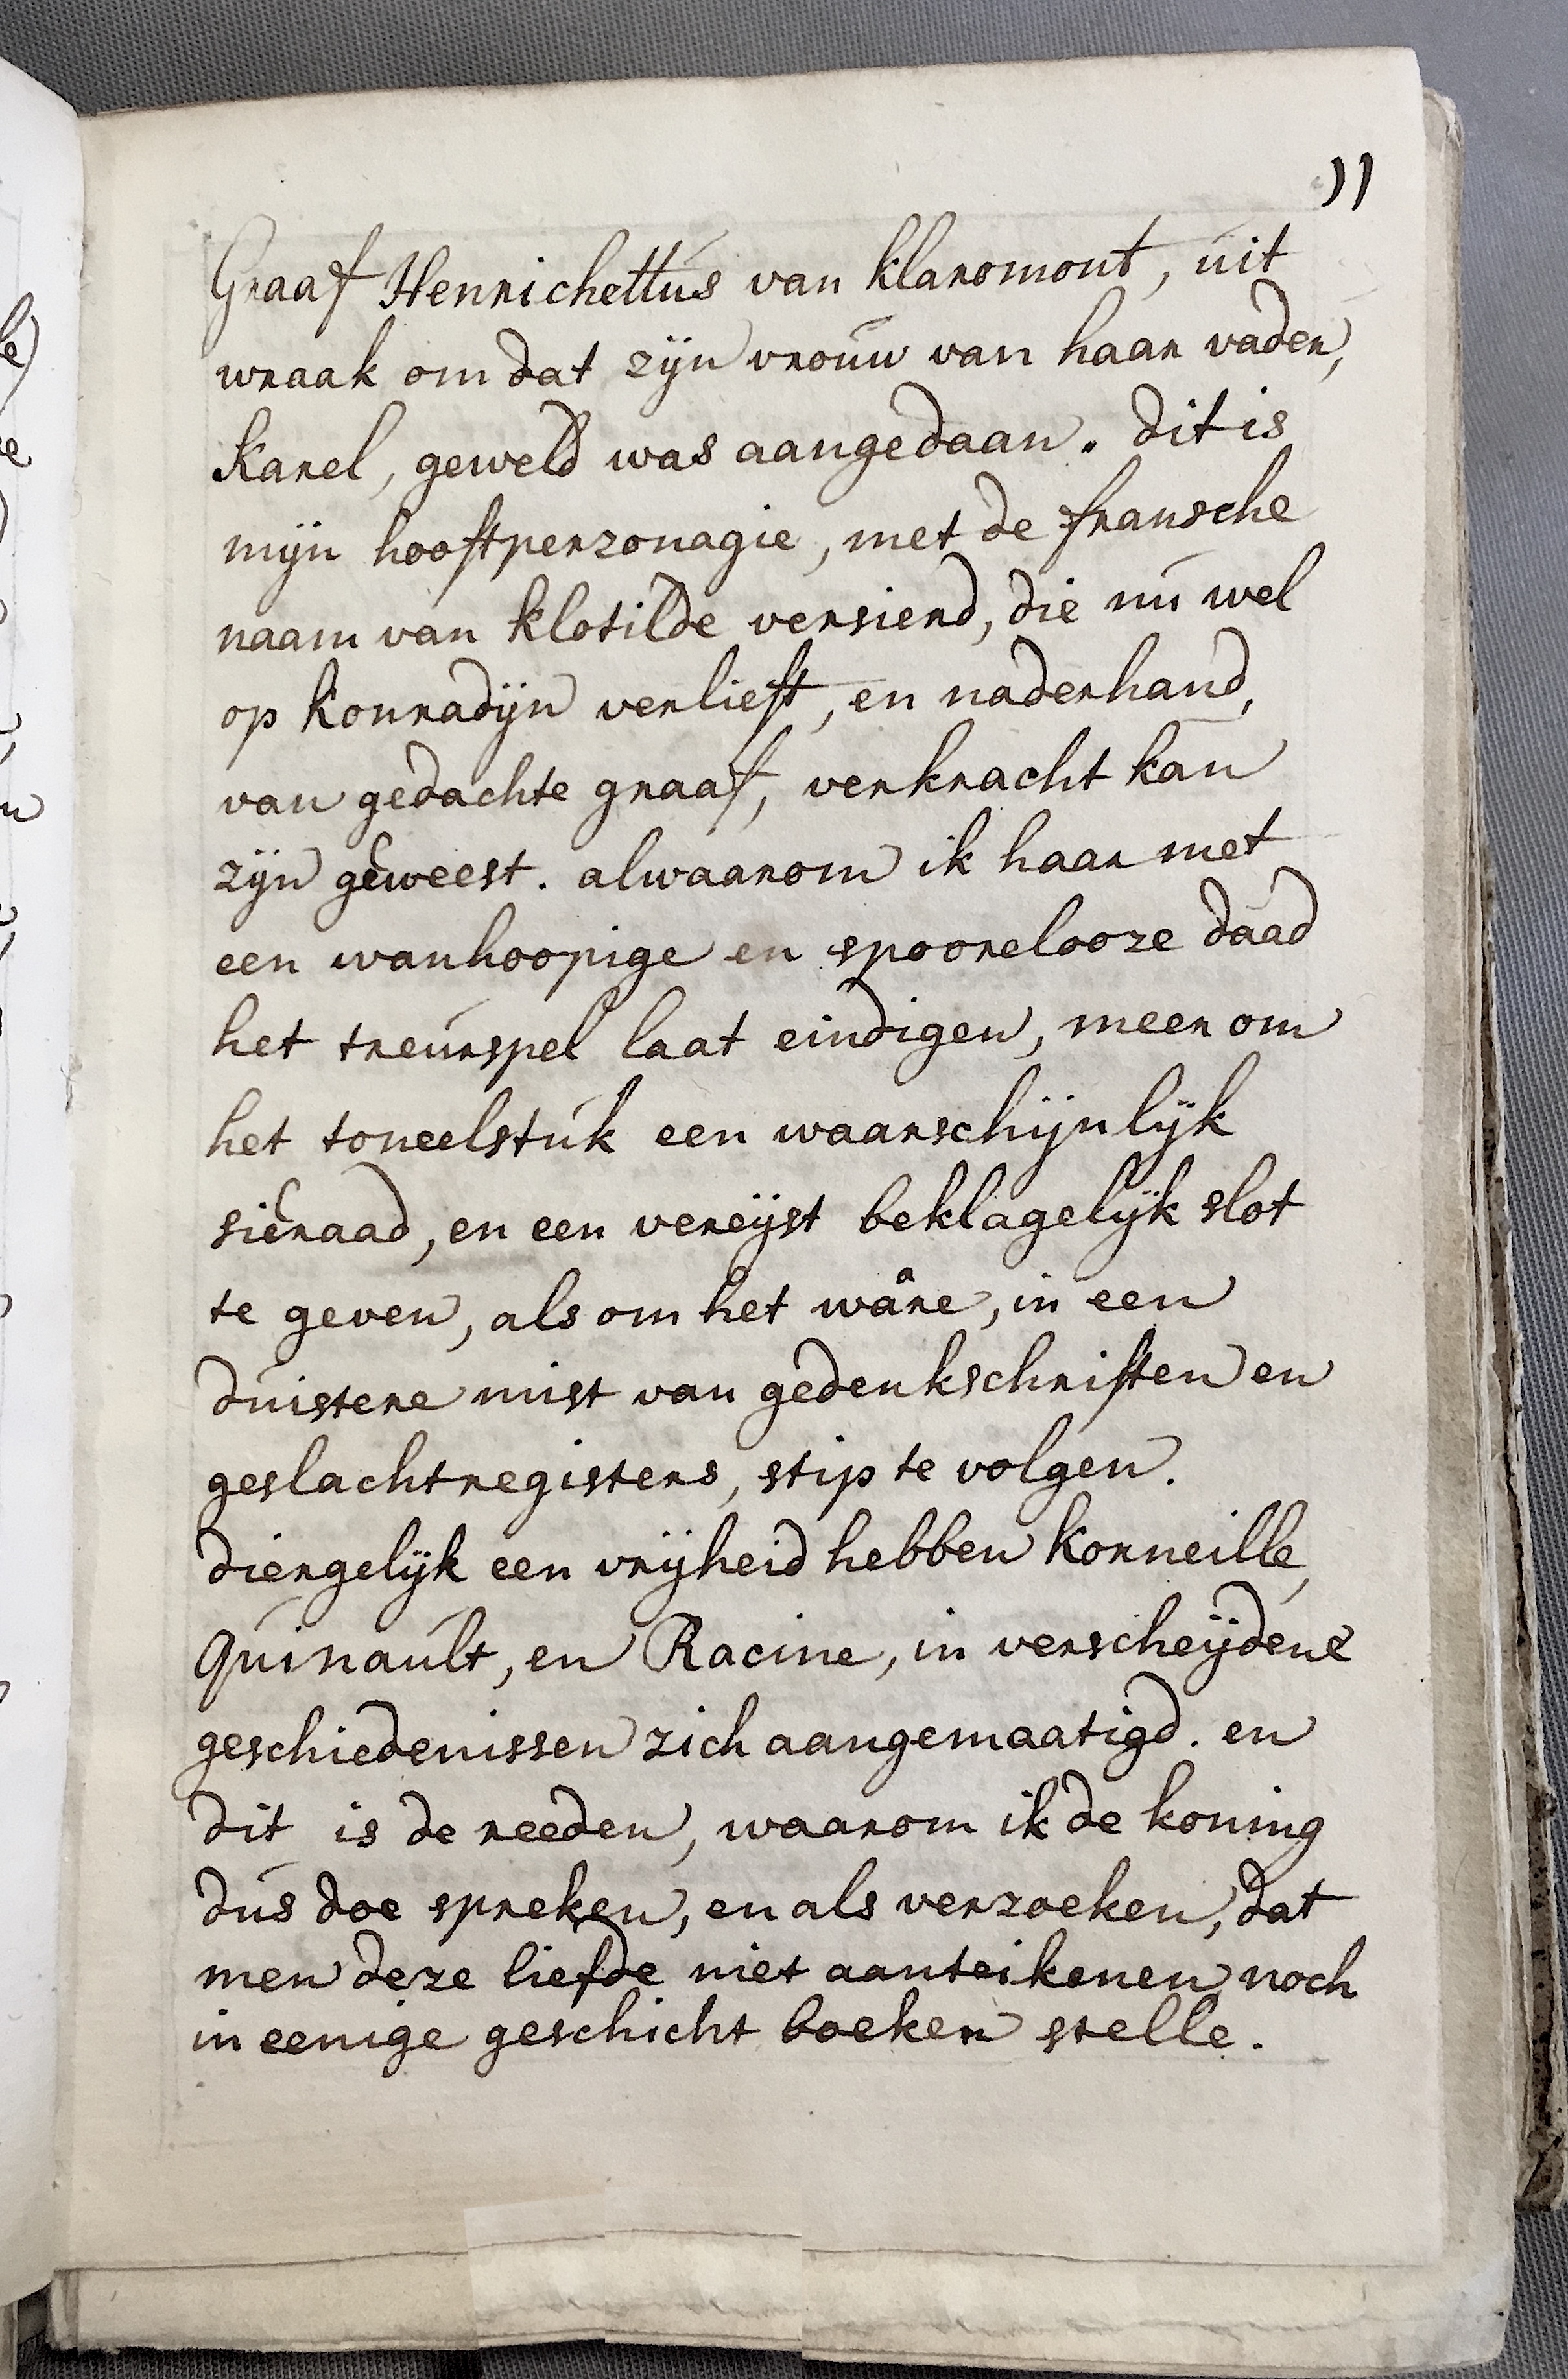 11
Graaf Henrichettus van klaromont, uit
wraak om dat zijn vrouw van haar vader,
Karel, geweld was aangedaan. dit is
mijn hooftperzonagie, met de fransche
naam van klotilde versierd, die nu wel
op Konradijn verlieft, en naderhand,
van gedachte graaf, verkracht kan
zijn geweest. alwaarom ik haar met
een wanhoopige en spoorelooze daad
het treurspel laat eindigen, meer om
het toneelstuk een waarschijnlijk
sieraad, en een vereijst beklagelijk slot
te geven, als om het wâre, in een
duistere mist van gedenkschriften en
geslachtregisters, stip te volgen.
diergelijk een vrijheid hebben Korneille,
Quinault, en Racine, in verscheijdene
geschiedenissen zich aangemaatigd. en
dit is de reeden, waarom ik de koning
dus doe spreken, en als verzoeken, dat
men deze liefde niet aanteikenen, noch
in eenige geschicht boeken stelle.